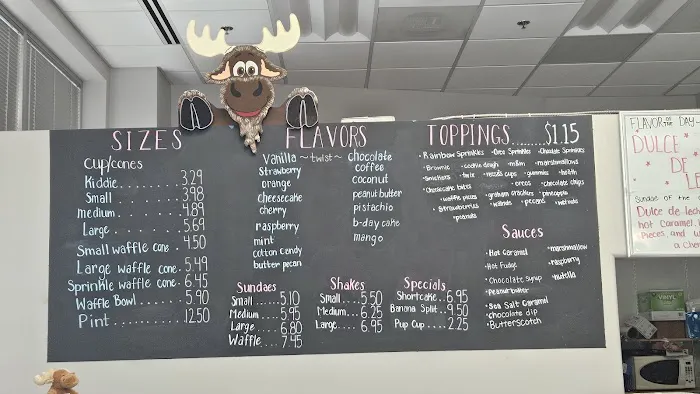 SIZES
Cup/cones
Kiddie........3.29
Small.........3.98
medium.......4.89
Large.........5.69
Small waffle cone.4.50
Large waffle cone.5.49
Sprinkle waffle cone.6.45
Waffle Bowl.....5.90
Pint...........12.50
FLAVORS
Vanilla ~twist~ chocolate
Strawberry
orange
cheesecake
cherry
raspberry
mint
cotton candy
butter pecan
coffee
coconut
peanut butter
pistachio
b-day cake
mango
Sundaes
Small....5.10
Medium....5.95
Large.....6.80
Waffle...7.45
Shakes
Small....5.50
Medium...6.25
Large....6.95
Specials
Shortcake..6.95
Banana Split..9.50
Pup Cup....2.25
TOPPINGS.......$1.15
•Rainbow Sprinkles •Oreo Sprinkles •Chocolate Sprinkles
•Brownie •cookie dough •m&m •marshmallows
•Snickers •twix •reeses cups •gummies •heath
•Cheesecake bites •oreos •chocolate chips
•waffle pieces •graham crackers •pineapple
•Strawberries •walnuts •pecans •walnuts
•peanuts
Sauces
•Hot Caramel
•Hot Fudge
•Chocolate Syrup
•Peanut butter
•Sea Salt Caramel
•chocolate dip
•Butterscotch
•marshmallow
•raspberry
•nutella
FLAVOR OF THE DAY
DULCE
DE
LE
SUNDAE OF THE
Dulce de lech
hot Caramel,
Pieces and w
a Che